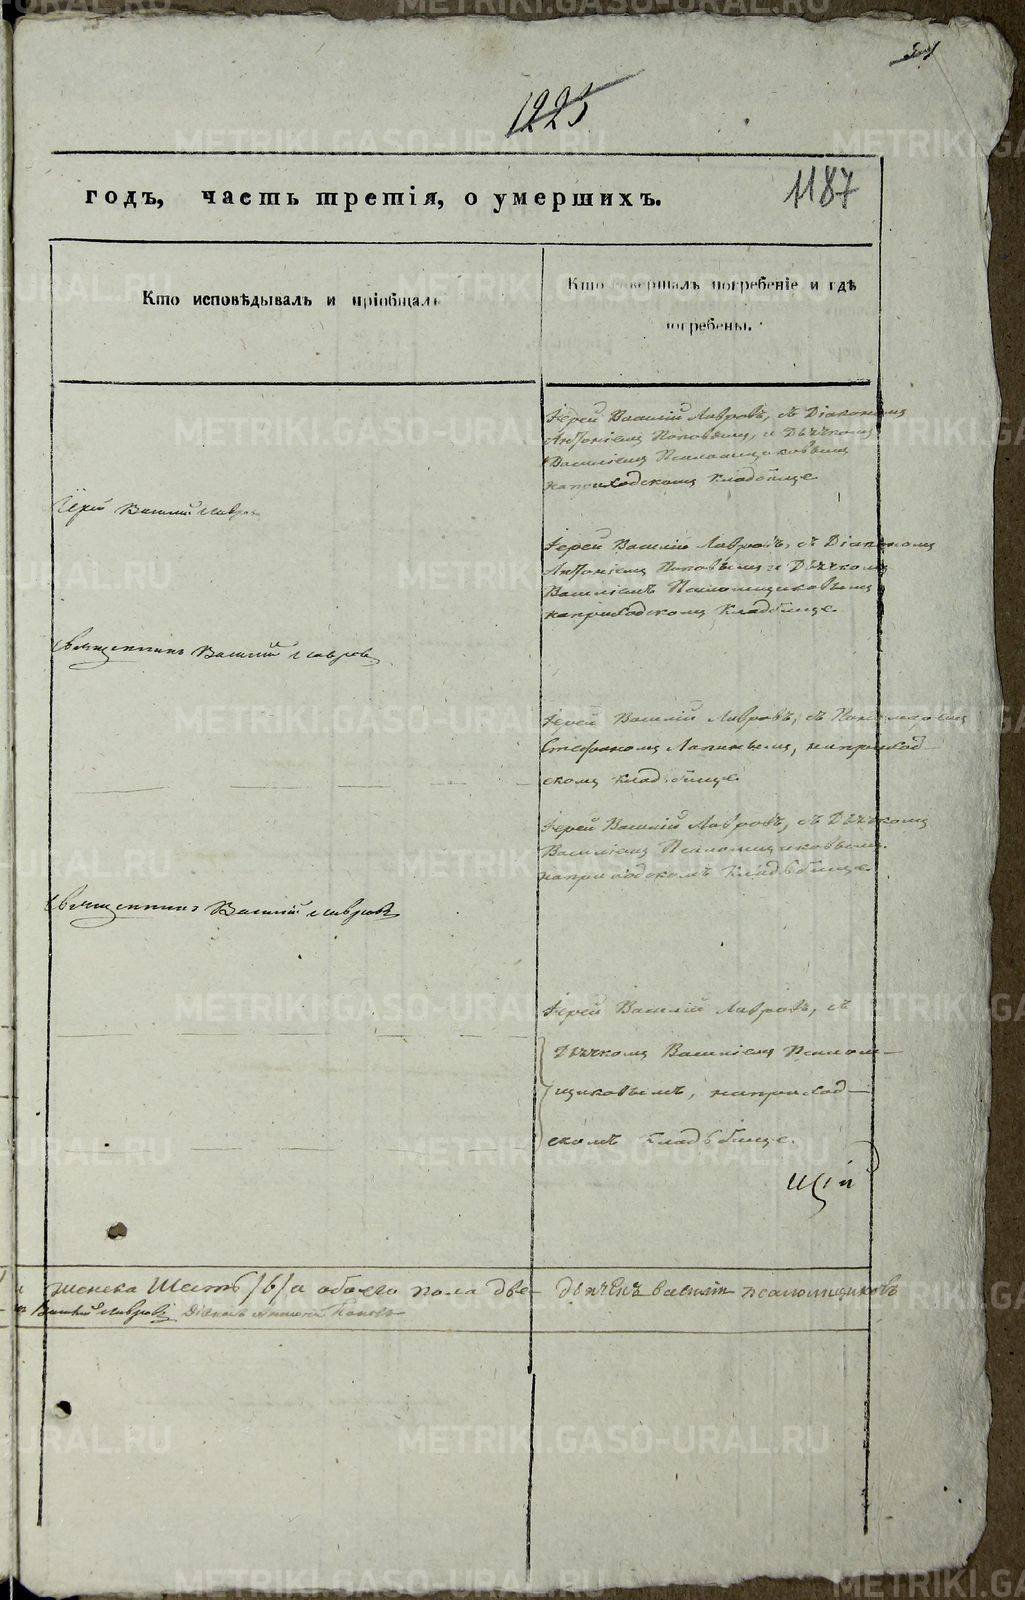 1225
1187
годъ, часть третія, о умершихъ.
Кто исповѣдывалъ и пріобщалъ
Кто совершалъ погребеніе и гдѣ
погребены.
Іерей Василій Лавровъ, съ Діакономъ
Антоніемъ Поповымъ, и Дьячкомъ
Василіемъ Псаломщиковымъ
на приходскомъ кладбище
Іерей Василій Лавровъ
Іерей Василій Лавровъ, съ Діакономъ
Антоніемъ Поповымъ и Дьячкомъ
Василіемъ Псаломщиковымъ
на приходскомъ Кладбище.
Священникъ Василій Лавровъ
Іерей Василій Лавровъ, съ Пономаремъ
Стефаномъ Лапинымъ, на приход-
скомъ кладьбище.
Іерей Василій Лавровъ, съ Дьячкомъ
Василіемъ Псаломщиковымъ.
на приходскомъ Кладьбище.
Священникъ Василій Лавровъ
Іерей Василій Лавровъ, съ
Дьячкомъ Василіемъ Псалом-
щиковымъ, на приход-
скомъ Кладьбище.
щій
женска Шесть /6/ а обоего пола две-
Дьячекъ василій псаломщиковъ
Василій Лавровъ Діаконъ Антоній Поповъ
METRIKI.GASO-URAL.RU